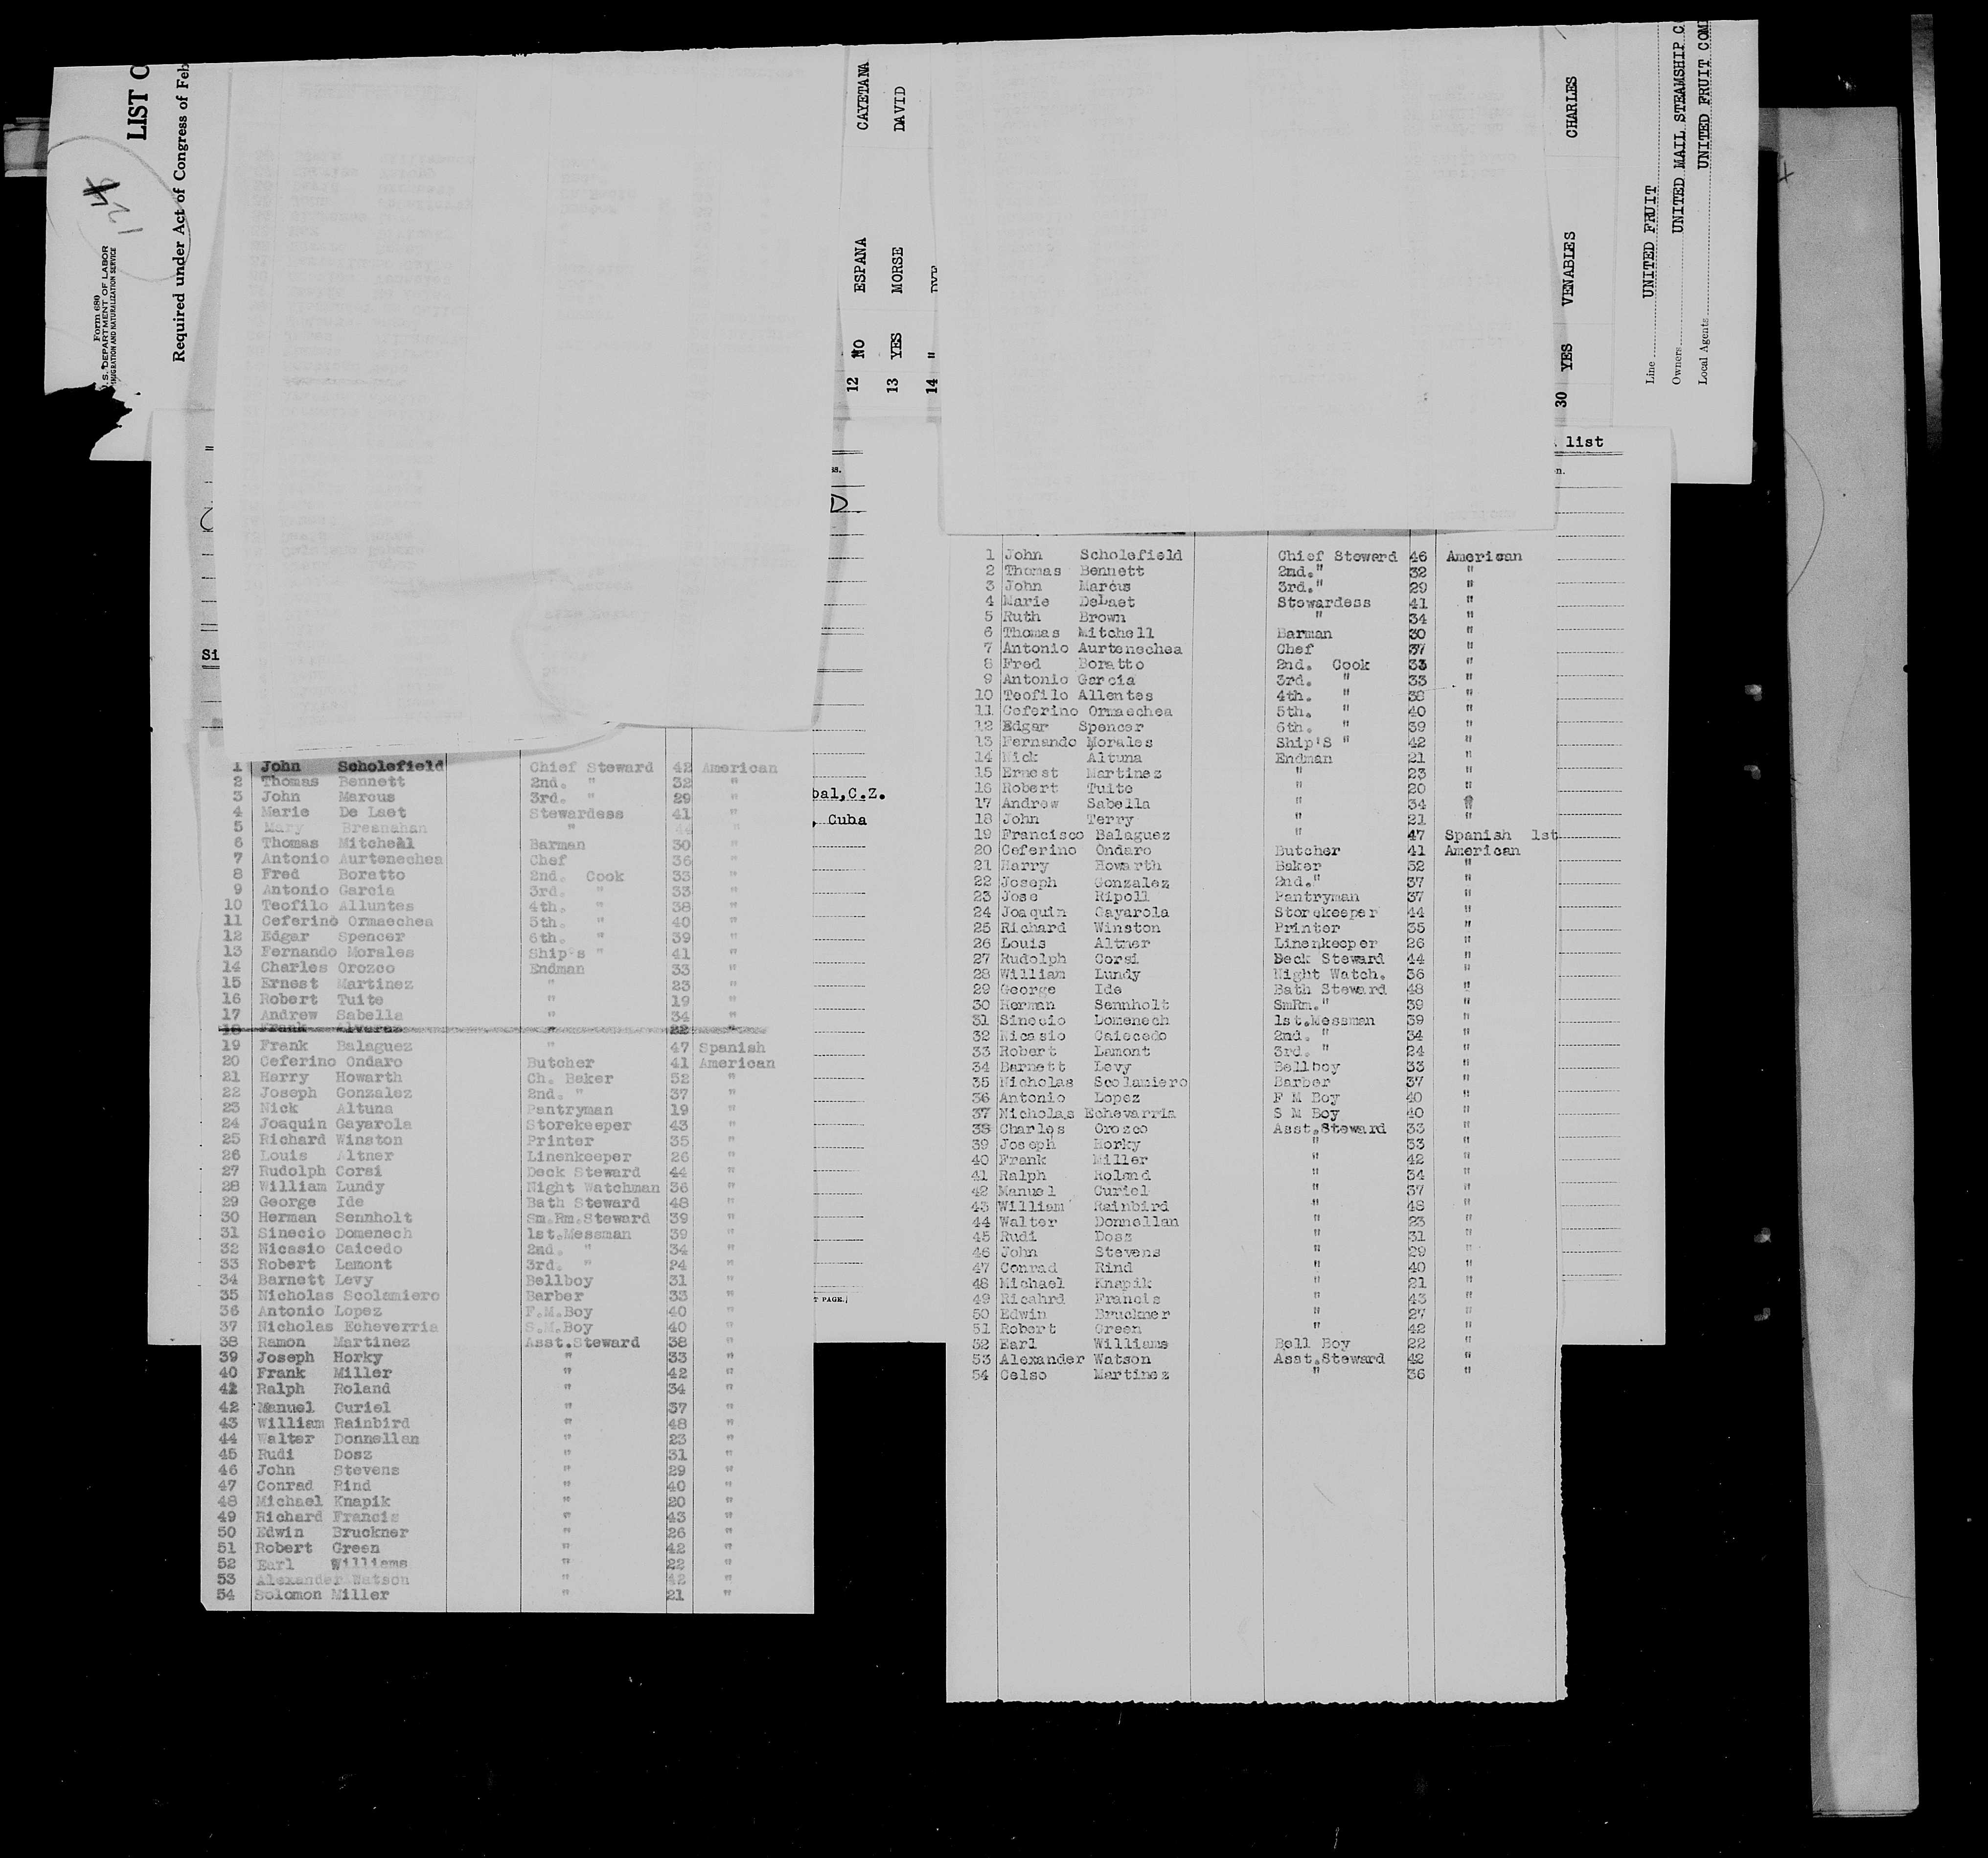 Form 680
U. S. DEPARTMENT OF LABOR
IMMIGRATION AND NATURALIZATION SERVICE
LIST
Required under Act of Congress of Feb
12 NO ESPANA CAYETANA
13 YES MORSE DAVID
14 "
30 YES VENABLES CHARLES
Line UNITED FRUIT
Owners UNITED MAIL STEAMSHIP C
Local Agents UNITED FRUIT COM
list
Si
bal, C.Z.
, Cuba
T PAGE.)
1 John Scholefield Chief Steward 42 American
2 Thomas Bennett 2nd. " 32 "
3 John Marcus 3rd. " 29 "
4 Marie De Laet Stewardess 41 "
5 Mary Bresnahan " 44 "
6 Thomas Mitchell Barman 30 "
7 Antonio Aurtenechea Chef 36 "
8 Fred Boretto 2nd. Cook 33 "
9 Antonio Garcia 3rd. " 33 "
10 Teofilo Alluntes 4th. " 38 "
11 Ceferino Ormaechea 5th. " 40 "
12 Edgar Spencer 6th. " 39 "
13 Fernando Morales Ship's " 41 "
14 Charles Orozco Endman 33 "
15 Ernest Martinez " 23 "
16 Robert Tuite " 19 "
17 Andrew Sabella " 34 "
18 Frank Alvarez " 22 "
19 Frank Balaguez " 47 Spanish
20 Ceferino Ondaro Butcher 41 American
21 Harry Howarth Ch. Baker 52 "
22 Joseph Gonzalez 2nd. " 37 "
23 Nick Altuna Pantryman 19 "
24 Joaquin Gayarola Storekeeper 43 "
25 Richard Winston Printer 35 "
26 Louis Altner Linenkeeper 26 "
27 Rudolph Corsi Deck Steward 44 "
28 William Lundy Night Watchman 36 "
29 George Ide Bath Steward 48 "
30 Herman Sennholt Sm.Rm.Steward 39 "
31 Sinecio Domenech 1st.Messman 39 "
32 Nicasio Caicedo 2nd. " 34 "
33 Robert Lamont 3rd. " 24 "
34 Barnett Levy Bellboy 31 "
35 Nicholas Scolamiero Barber 33 "
36 Antonio Lopez F.M.Boy 40 "
37 Nicholas Echeverria S.M.Boy 40 "
38 Ramon Martinez Asst.Steward 38 "
39 Joseph Horky " 33 "
40 Frank Miller " 42 "
41 Ralph Roland " 34 "
42 Manuel Curiel " 37 "
43 William Rainbird " 48 "
44 Walter Donnellan " 23 "
45 Rudi Dosz " 31 "
46 John Stevens " 29 "
47 Conrad Rind " 40 "
48 Michael Knapik " 20 "
49 Richard Francis " 43 "
50 Edwin Bruckner " 26 "
51 Robert Green " 42 "
52 Earl Williams " 22 "
53 Alexander Watson " 42 "
54 Solomon Miller " 21 "
1 John Scholefield Chief Steward 46 American
2 Thomas Bennett 2nd." 32 "
3 John Marcus 3rd." 29 "
4 Marie DeLaet Stewardess 41 "
5 Ruth Brown " 34 "
6 Thomas Mitchell Barman 30 "
7 Antonio Aurtenechea Chef 37 "
8 Fred Boratto 2nd. Cook 33 "
9 Antonio Garcia 3rd. " 33 "
10 Teofilo Allentes 4th. " 38 "
11 Ceferino Ormaechea 5th. " 40 "
12 Edgar Spencer 6th. " 39 "
13 Fernando Morales Ship'S " 42 "
14 Nick Altuna Endman 21 "
15 Ernest Martinez " 23 "
16 Robert Tuite " 20 "
17 Andrew Sabella " 34 "
18 John Terry " 21 "
19 Francisco Balaguez " 47 Spanish 1st
20 Ceferino Ondaro Butcher 41 American
21 Harry Howarth Baker 52 "
22 Joseph Gonzalez 2nd." 37 "
23 Jose Ripoll Pantryman 37 "
24 Joaquin Gayarola Storekeeper 44 "
25 Richard Winston Printer 35 "
26 Louis Altner Linenkeeper 26 "
27 Rudolph Corsi Deck Steward 44 "
28 William Lundy Night Watch. 36 "
29 George Ide Bath Steward 48 "
30 Herman Sennholt SmRm." 39 "
31 Sinecio Domenech 1st.Messman 39 "
32 Nicasio Caicedo 2nd. " 34 "
33 Robert Lamont 3rd. " 24 "
34 Barnett Levy Bellboy 33 "
35 Nicholas Scolamiero Barber 37 "
36 Antonio Lopez F M Boy 40 "
37 Nicholas Echevarria S M Boy 40 "
38 Charles Orozco Asst.Steward 33 "
39 Joseph Horky " 33 "
40 Frank Miller " 42 "
41 Ralph Roland " 34 "
42 Manuel Curiel " 37 "
43 William Rainbird " 48 "
44 Walter Donnellan " 23 "
45 Rudi Dosz " 31 "
46 John Stevens " 29 "
47 Conrad Rind " 40 "
48 Michael Knapik " 21 "
49 Ricahrd Francis " 43 "
50 Edwin Bruckner " 27 "
51 Robert Green " 42 "
52 Earl Williams Bell Boy 22 "
53 Alexander Watson Asst.Steward 42 "
54 Celso Martinez " 36 "